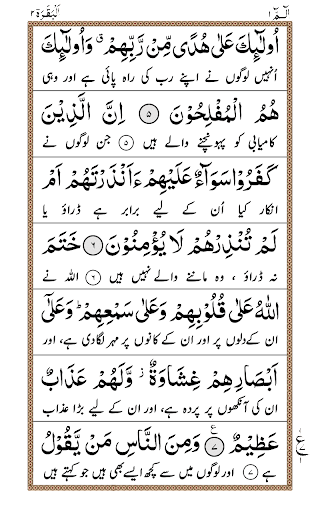 الٓمّٓ ۱ البقرة ۲
اُولٰٓئِكَ عَلٰى هُدًى مِّنْ رَّبِّهِمْ ۗ وَاُولٰٓئِكَ
انہیں لوگوں نے اپنے رب کی راہ پائی ہے اور وہی
هُمُ الْمُفْلِحُوْنَ ۵ اِنَّ الَّذِيْنَ
کامیابی کو پہونچنے والے ہیں ۵ جن لوگوں نے
كَفَرُوْا سَوَآءٌ عَلَيْهِمْ ءَاَنْذَرْتَهُمْ اَمْ
انکار کیا اُن کے لیے برابر ہے ڈراؤ یا
لَمْ تُنْذِرْهُمْ لَا يُؤْمِنُوْنَ ۶ خَتَمَ
نہ ڈراؤ ، وہ ماننے والے نہیں ہیں ۶ اللہ نے
اللّٰهُ عَلٰى قُلُوْبِهِمْ وَعَلٰى سَمْعِهِمْ ؕ وَعَلٰٓى
ان کے دلوں پر اور ان کے کانوں پر مہر لگا دی ہے، اور
اَبْصَارِهِمْ غِشَاوَةٌ ؗ وَّلَهُمْ عَذَابٌ
ان کی آنکھوں پر پردہ ہے، اور ان کے لیے بڑا عذاب
عَظِيْمٌ ۷ وَمِنَ النَّاسِ مَنْ يَّقُوْلُ
ہے ۷ اور لوگوں میں سے کچھ ایسے بھی ہیں جو کہتے ہیں